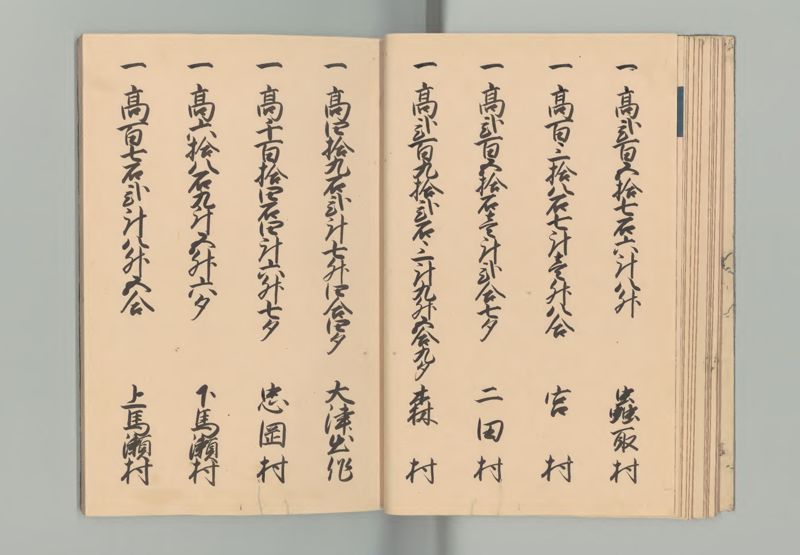 一 高弐百五拾七石六斗八升 蟲取村
一 高百三拾八石七斗壱升八合 宮村
一 高弐百五拾石壱斗弐合七夕 二田村
一 高弐百九拾弐石三斗九升六合九夕 森村
一 高四拾九石弐斗七升四合四夕 大津出作
一 高千百拾四石四斗六升七夕 忠岡村
一 高六拾八石九斗五升六夕 下馬瀬村
一 高百七石弐斗八升五合 上馬瀬村